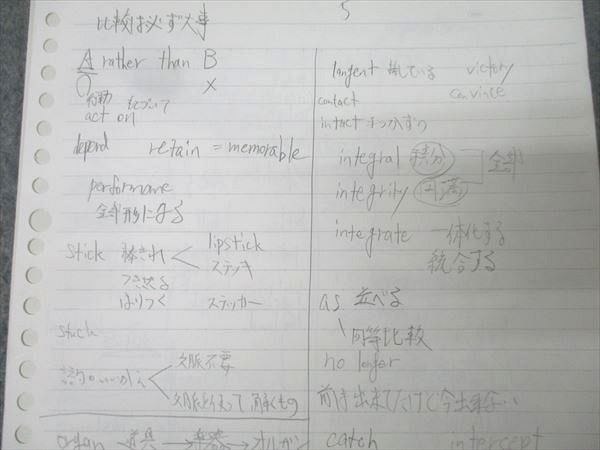 比較は必ず大事
A rather than B
○ ×
行動 もとづいて
act on
depend retain = memorable
performane
全部形にする
stick 棒きれ lipstick
ステッキ
つき出る
はりつく ステッカー
stuck
語のいいかえ 文脈不要
文脈を使って
organ 道具 → 楽器 → オルガン
5
tangent 接している victory
contact convince
intact 手つかずの
integral 積分 全部
integrity 円満
integrate 一体化する
統合する
as 並べる
同等比較
no longer
前は出来てたけど今出来ない
catch intercept